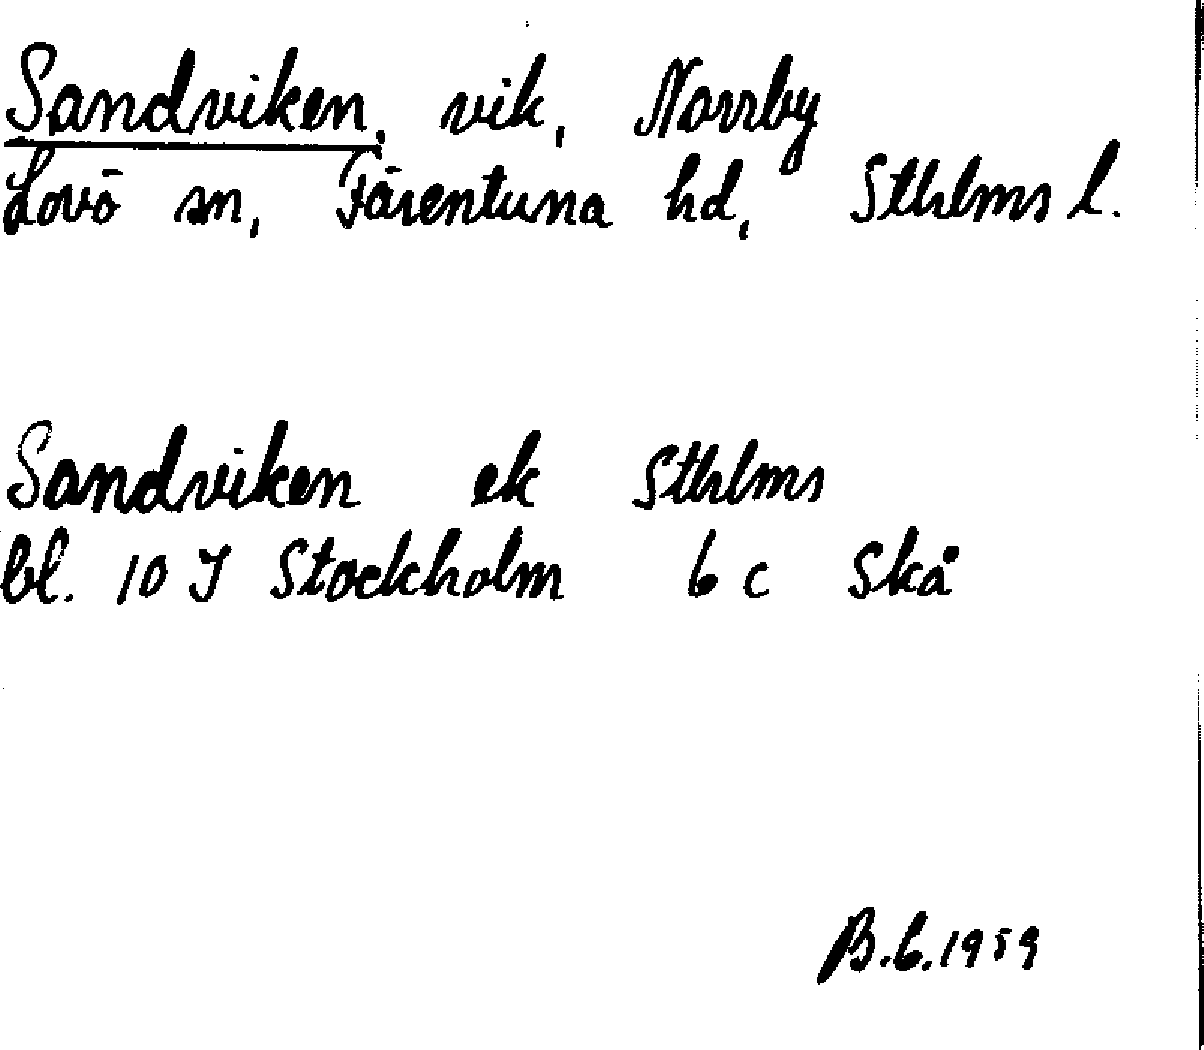 Sandviken, vik, Norrby
Lovö sn, Färentuna hd, Sthlms l.
Sandviken ek Sthlms
bl. 10 I Stockholm 6 c Skå
B.G.1959